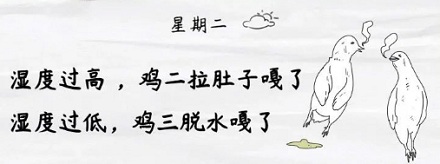 星期二
湿度过高，鸡二拉肚子嘎了
湿度过低，鸡三脱水嘎了